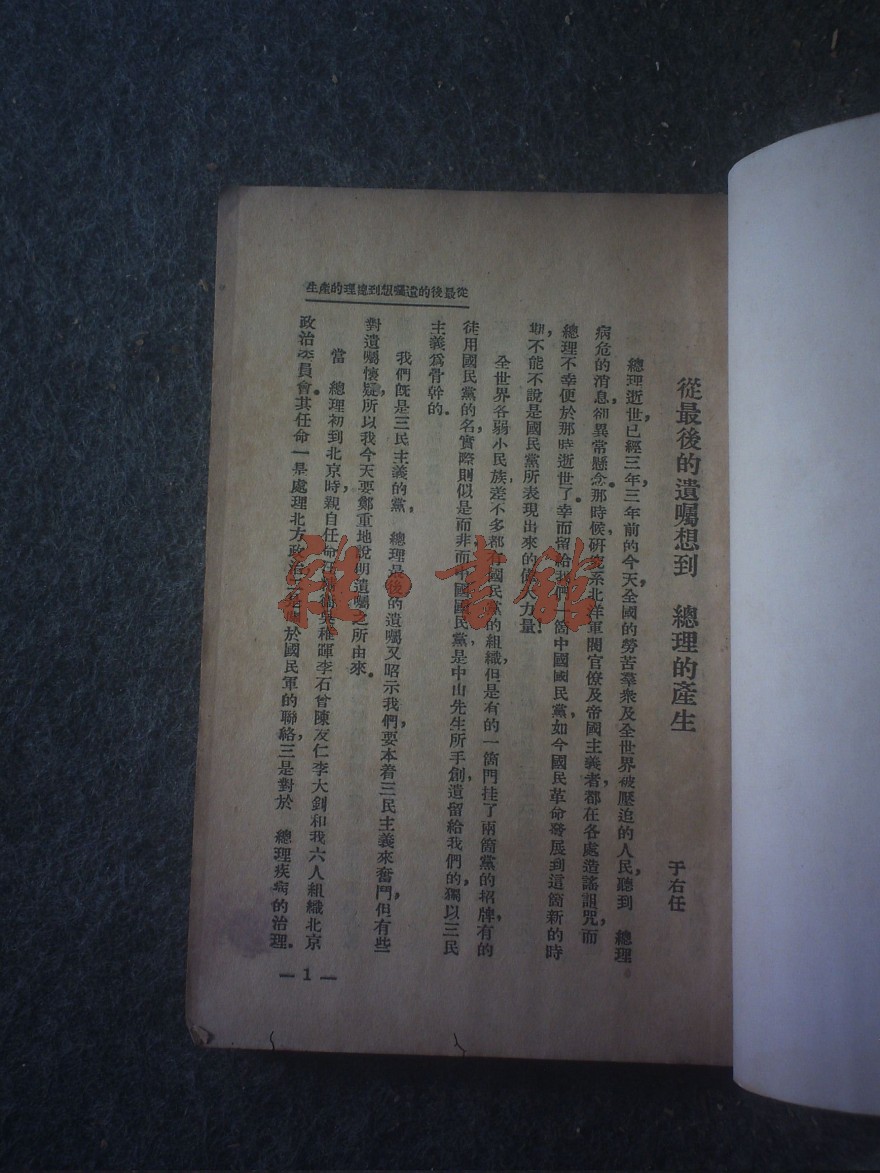 從最後的遺囑想到　總理的產生
于右任
總理逝世，已經三年，三年前的今天，全國的勞苦羣衆及全世界被壓迫的人民，聽到　總理
病危的消息，卻異常懸念。那時候研究系北洋軍閥官僚及帝國主義者，都在各處造謠詛咒，而
總理不幸便於那時逝世了。幸而留給我們一箇中國國民黨，如今國民革命發展到這箇新的時
期，不能不說是國民黨所表現出來的偉大力量！
全世界各弱小民族，差不多都有國民黨的組織，但是有的一箇門挂了兩箇黨的招牌，有的
徒用國民黨的名，實際則似是而非，而中國國民黨，是中山先生所手創，遺留給我們的，獨以三民
主義爲骨幹的。
我們旣是三民主義的黨，　總理最後的遺囑又昭示我們，要本着三民主義來奮鬥，但有些
對遺囑懷疑，所以我今天要鄭重地說明遺囑之所由來。
當　總理初到北京時，親自任命吳稚暉李石曾陳友仁李大釗和我六人組織北京
政治委員會。其任命一是處理北方政治，二是對於國民軍的聯絡，三是對於　總理疾病的治理。
從最後的遺囑想到總理的產生
— 1 —
雜·書館